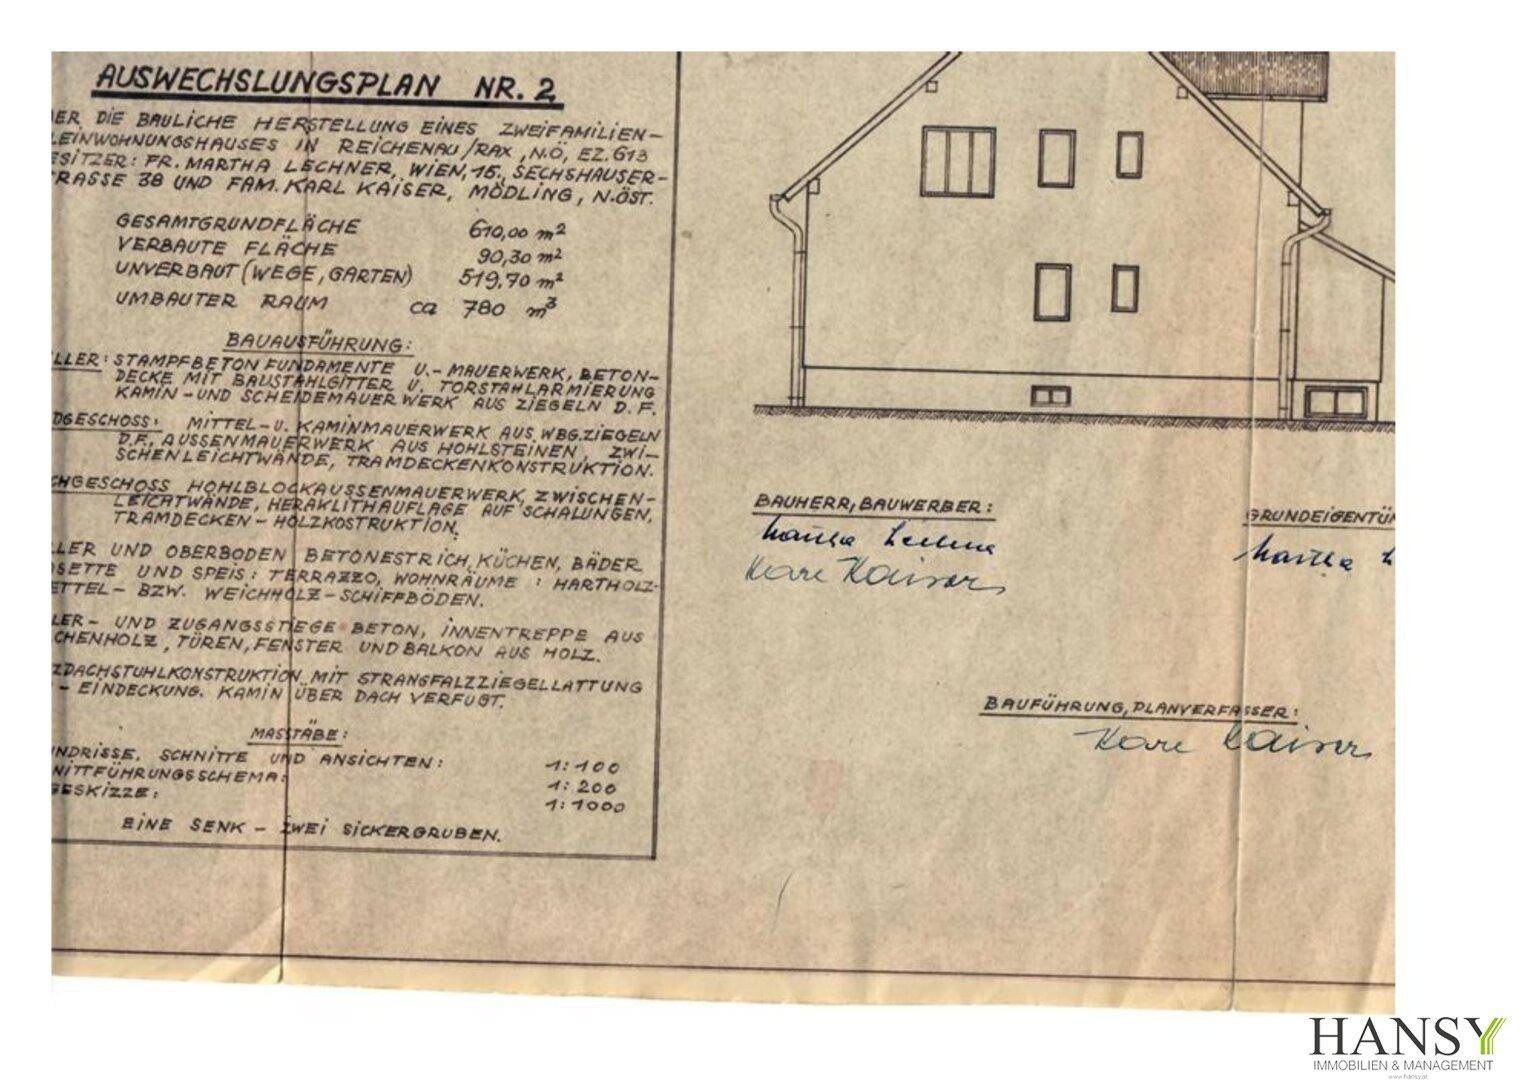 AUSWECHSLUNGSPLAN NR. 2
ER DIE BAULICHE HERSTELLUNG EINES ZWEIFAMILIEN-
EINWOHNUNGSHAUSES IN REICHENAU/RAX, N.Ö, EZ. 613
SITZER: FR. MARTHA LECHNER, WIEN, 15, SECHSHAUSER-
RASSE 38 UND FAM. KARL KAISER, MÖDLING, N.ÖST.
GESAMTGRUNDFLÄCHE 610,00 m²
VERBAUTE FLÄCHE 90,30 m²
UNVERBAUT (WEGE, GARTEN) 519,70 m²
UMBAUTER RAUM ca 780 m³
BAUAUSFÜHRUNG:
LLER: STAMPFBETON FUNDAMENTE U.- MAUERWERK, BETON-
DECKE MIT BAUSTAHLGITTER U. TORSTAHLARMIERUNG
KAMIN-UND SCHEIDEMAUERWERK AUS ZIEGELN D.F.
DGESCHOSS: MITTEL-U. KAMINMAUERWERK AUS WBG. ZIEGELN
D.F., AUSSENMAUERWERK AUS HOHLSTEINEN, ZWI-
SCHENLEICHTWÄNDE, TRAMDECKENKONSTRUKTION.
CHGESCHOSS HOHLBLOCKAUSSENMAUERWERK, ZWISCHEN-
LEICHTWÄNDE, HERAKLITHAUFLAGE AUF SCHALUNGEN,
TRAMDECKEN-HOLZKOSTRUKTION.
LLER UND OBERBODEN BETONESTRICH, KÜCHEN, BÄDER
SETTE UND SPEIS: TERRAZZO, WOHNRÄUME : HARTHOLZ-
ETTEL- BZW. WEICHHOLZ-SCHIFFBÖDEN.
LER- UND ZUGANGSSTIEGE BETON, INNENTREPPE AUS
CHENHOLZ, TÜREN, FENSTER UND BALKON AUS HOLZ.
ZDACHSTUHLKONSTRUKTION MIT STRANGFALZZIEGELLATTUNG
- EINDECKUNG. KAMIN ÜBER DACH VERFUGT.
MASSTÄBE:
NDRISSE, SCHNITTE UND ANSICHTEN: 1:100
NITTFÜHRUNGSSCHEMA: 1:200
ESKIZZE: 1:1000
EINE SENK - ZWEI SICKERGRUBEN.
BAUHERR, BAUWERBER:
Martha Lechner
Karl Kaiser
GRUNDEIGENTÜ
Martha L
BAUFÜHRUNG, PLANVERFASSER:
Karl Kaiser
HANSY
IMMOBILIEN & MANAGEMENT
www.hansy.at